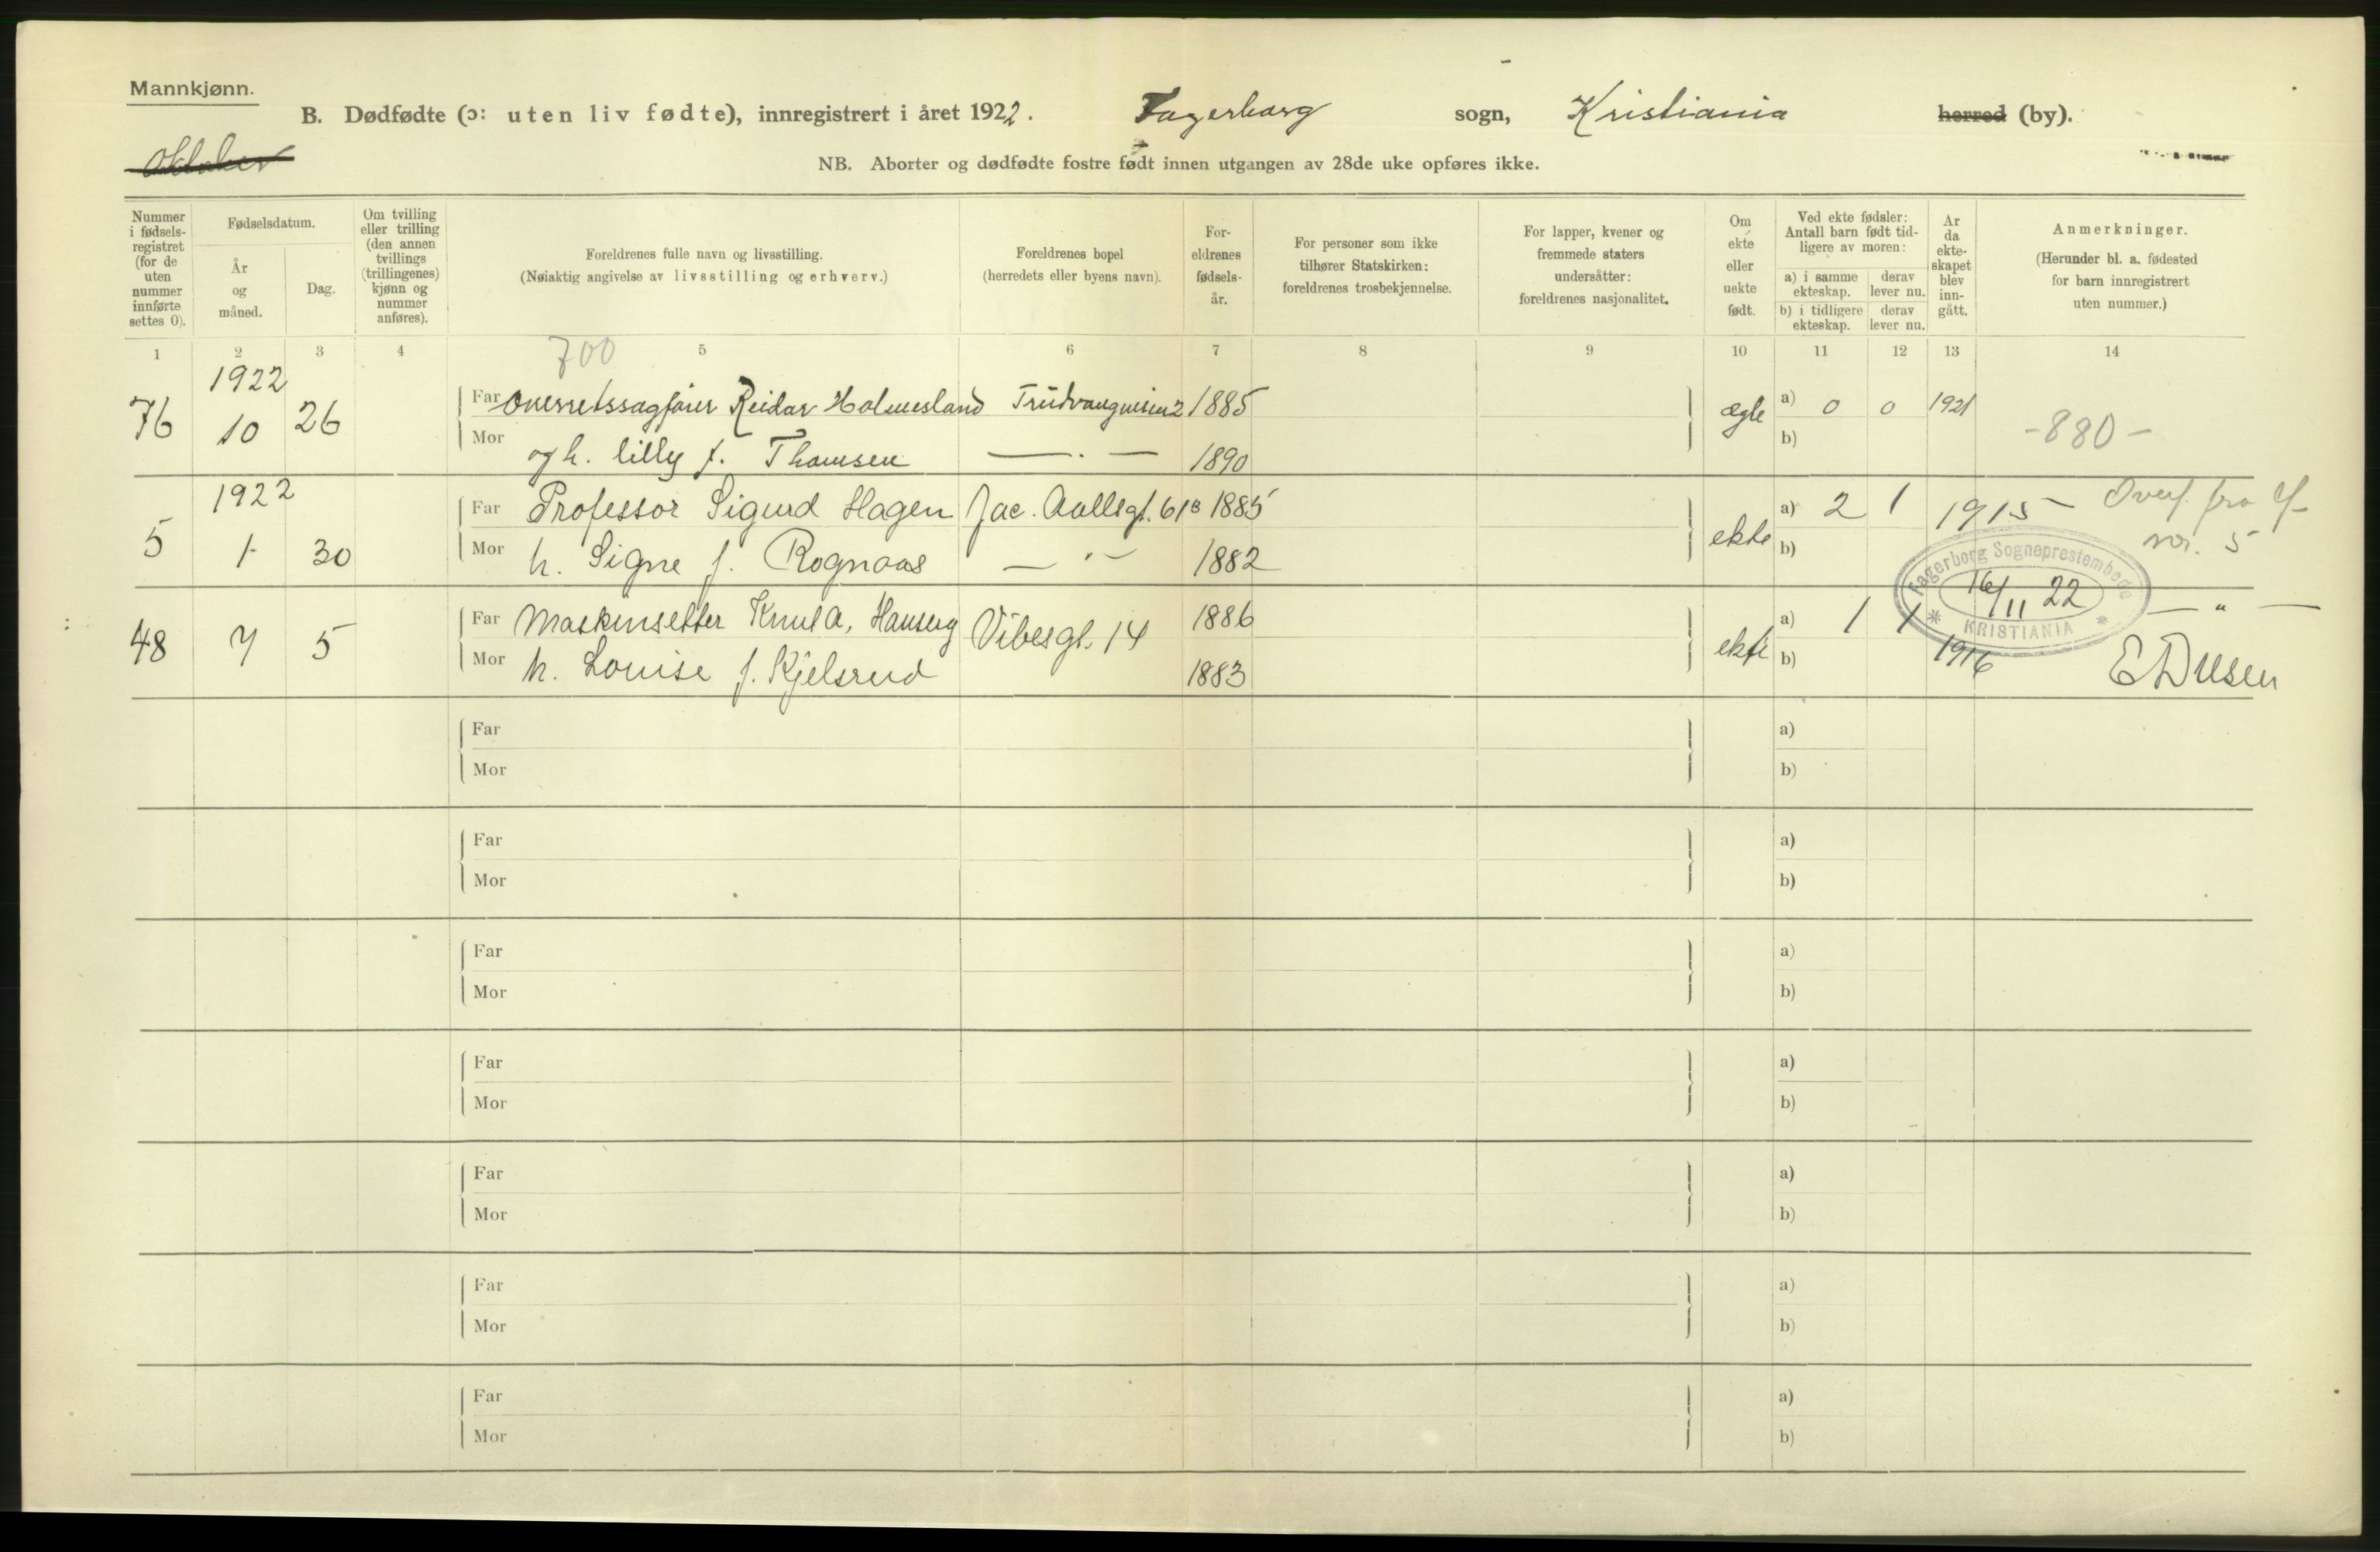 Mannkjønn.
B. Dødfødte (ɔ: uten liv fødte), innregistrert i året 1922. Fagerborg sogn, Kristiania herred (by).
Oktober
NB. Aborter og dødfødte fostre født innen utgangen av 28de uke opføres ikke.
Nummer i fødsels-registret (for de uten nummer innførte settes 0).
Fødselsdatum.
År og måned.
Dag.
Om tvilling eller trilling (den annen tvillings (trillingenes) kjønn og nummer anføres).
Foreldrenes fulle navn og livsstilling.
(Nøiaktig angivelse av livsstilling og erhverv.)
Foreldrenes bopel
(herredets eller byens navn).
For-eldrenes fødsels-år.
For personer som ikke tilhører Statskirken: foreldrenes trosbekjennelse.
For lapper, kvener og fremmede staters undersåtter: foreldrenes nasjonalitet.
Om ekte eller uekte født.
Ved ekte fødsler: Antall barn født tid-ligere av moren:
a) i samme ekteskap. derav lever nu.
b) i tidligere ekteskap. derav lever nu.
År da ekte-skapet blev inn-gått.
Anmerkninger.
(Herunder bl. a. fødested for barn innregistrert uten nummer.)
1 2 3 4 5 6 7 8 9 10 11 12 13 14
700
1922
76 10 26 Far Overretssagfører Reidar Holmesland 1885 ægte a) 0 0 1921
Mor og h. Lilly f. Thomsen — . — 1890 b) -880-
1922
5 1 30 Far Professor Sigurd Hagen Jac. Aallsgt. 61B 1885 ekte a) 2 1 1915 - Overf. fra
nr. 5
Mor h. Signe f. Rognaas — " — 1882 b)
Fagerborg Sogneprestembede
16/11 22
KRISTIANIA
48 7 5 Far Maskinsetter Knut A. Vibesgt. 14 1886 ekte a) 1 1 1916 — " —
Mor h. Louise f. Kjelsrud 1883 b)
Far a)
Mor b)
Far a)
Mor b)
Far a)
Mor b)
Far a)
Mor b)
Far a)
Mor b)
Far a)
Mor b)
Far a)
Mor b)